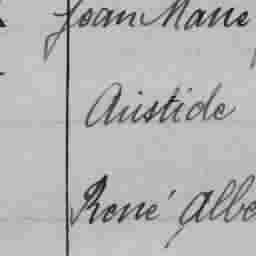 Jean Marie
Aristide
René Albe